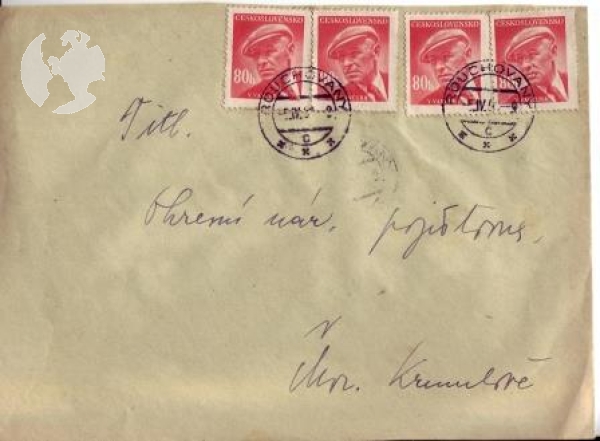 ČESKOSLOVENSKO ČESKOSLOVENSKO ČESKOSLOVENSKO ČESKOSLOVENSKO
80h 80h
ROUCHOVANY ROUCHOVANY
C C
Titl.
Okresní nár. pojišťovna,
v
Mor. Krumlově